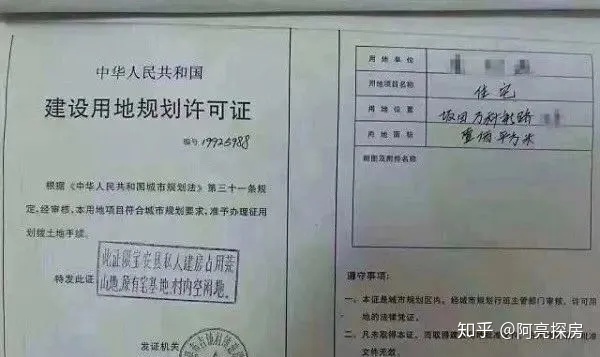 中华人民共和国
建设用地规划许可证
编号 19925988
根据《中华人民共和国城市规划法》第三十一条规
定,经审核,本用地项目符合城市规划要求,准予办理征用
划拨土地手续。
特发此证
此证限宝安县私人建房占用荒
山地、原有宅基地、村内空闲地。
发证机关
用地单位
用地项目名称 住宅
用地位置 坂田万科
用地面积 壹佰平方米
附图及附件名称
遵守事项:
一、本证是城市规划区内,经城市规划行政主管部门审核,许可用
地的法律凭证。
二、凡未取得本证,而取得
文件无效。
知乎 @阿亮探房